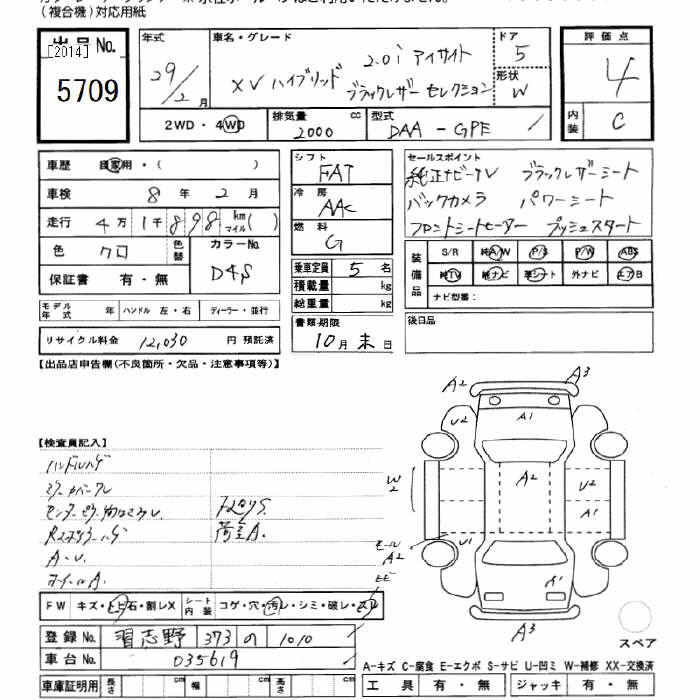 (複合機)対応用紙
出品 No.
[2014]
5709
年式
29/2月
車名・グレード
2.0i アイサイト
XV ハイブリッド ブラックレザー セレクション
ドア
5
形状
W
評価点
4
内装
C
2WD・4WD
排気量
2000 cc
型式
DAA - GPE
車歴 自家用・( )
車検 8年 2月
走行 4万 1千 898 km マイル( )
色 クロ
色替
カラーNo.
D4S
保証書 有・無
モデル年式 年 ハンドル 左・右 ディーラー・並行
リサイクル料金 12,030 円 預託済
シフト
FAT
冷房
AAC
燃料
G
乗車定員 5 名
積載量 kg
総重量 kg
書類期限
10月 末日
セールスポイント
純正ナビTV ブラックレザーシート
バックカメラ パワーシート
フロントシートヒーター プッシュスタート
装備品
S/R 純A/W P/S P/W ABS
純TV 純ナビ 革シート 外ナビ エアB
ナビ型番:
後日品
【出品店申告欄(不良箇所・欠品・注意事項等)】
【検査員記入】
ハンドルハゲ
A・U.
ホイールA.
A2
A3
U2
A1
A2
W2
U2
モール
A2
U1
A1
A3
スペア
FW キズ・トビ石・割レX
シート内装 コゲ・穴・汚レ・シミ・破レ・スレ
登録 No. 習志野 373 の 1010
車台 No. 035619
車庫証明用 長さ cm 幅 cm 高さ cm
A-キズ C-腐食 E-エクボ S-サビ U-凹ミ W-補修 XX-交換済
工具 有・無 ジャッキ 有・無